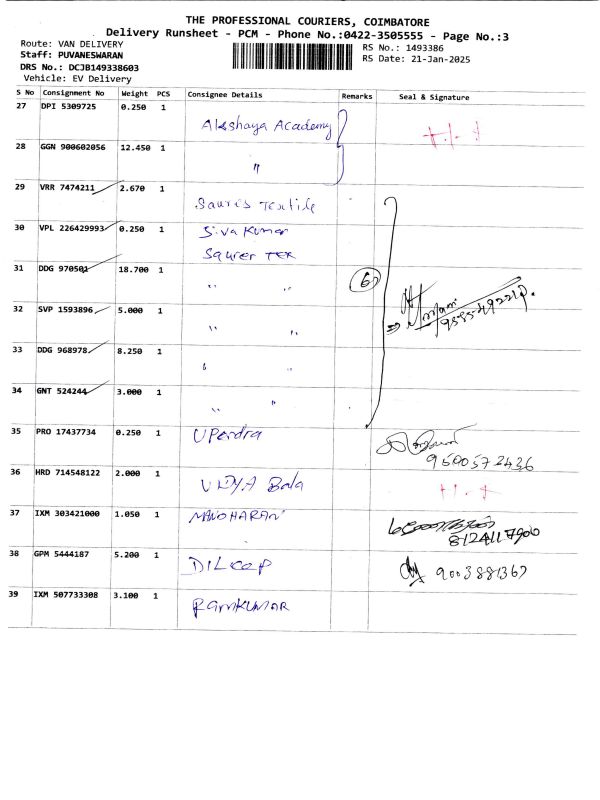 THE PROFESSIONAL COURIERS, COIMBATORE
Delivery Runsheet - PCM - Phone No.:0422-3505555 - Page No.:3
Route: VAN DELIVERY
RS No.: 1493386
Staff: PUVANESWARAN
RS Date: 21-Jan-2025
DRS No.: DCJB149338603
Vehicle: EV Delivery
S No Consignment No Weight PCS Consignee Details Remarks Seal & Signature
27 DPI 5309725 0.250 1 Akshaya Academy
28 GGN 900602056 12.450 1 "
29 VRR 7474211 2.670 1 Saures Textile
30 VPL 226429993 0.250 1 Siva Kumar
Saurer TEX
31 DDG 970501 18.700 1 " " 6
32 SVP 1593896 5.000 1 " "
33 DDG 968978 8.250 1 " "
34 GNT 524244 3.000 1 " "
35 PRO 17437734 0.250 1 Upendra
9600572436
36 HRD 714548122 2.000 1 VIDYA Bala
37 IXM 303421000 1.050 1 MANOHARAN
8124117900
38 GPM 5444187 5.200 1 DILEEP 9003881367
39 IXM 507733308 3.100 1 RAMKUMAR